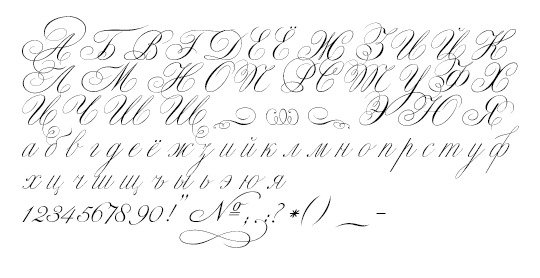 А Б В Г Д Е Ё Ж З И Й К
Л М Н О П Р С Т У Ф Х
Ц Ч Ш Щ Э Ю Я
а б в г д е ё ж з и й к л м н о п р с т у ф
х ц ч ш щ ъ ы ь э ю я
1234567890!" № ; . : ? * ( ) _ -